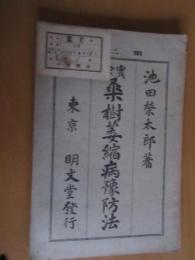 池田榮太郎著
實
桑樹萎縮病豫防法
東京 明文堂發行